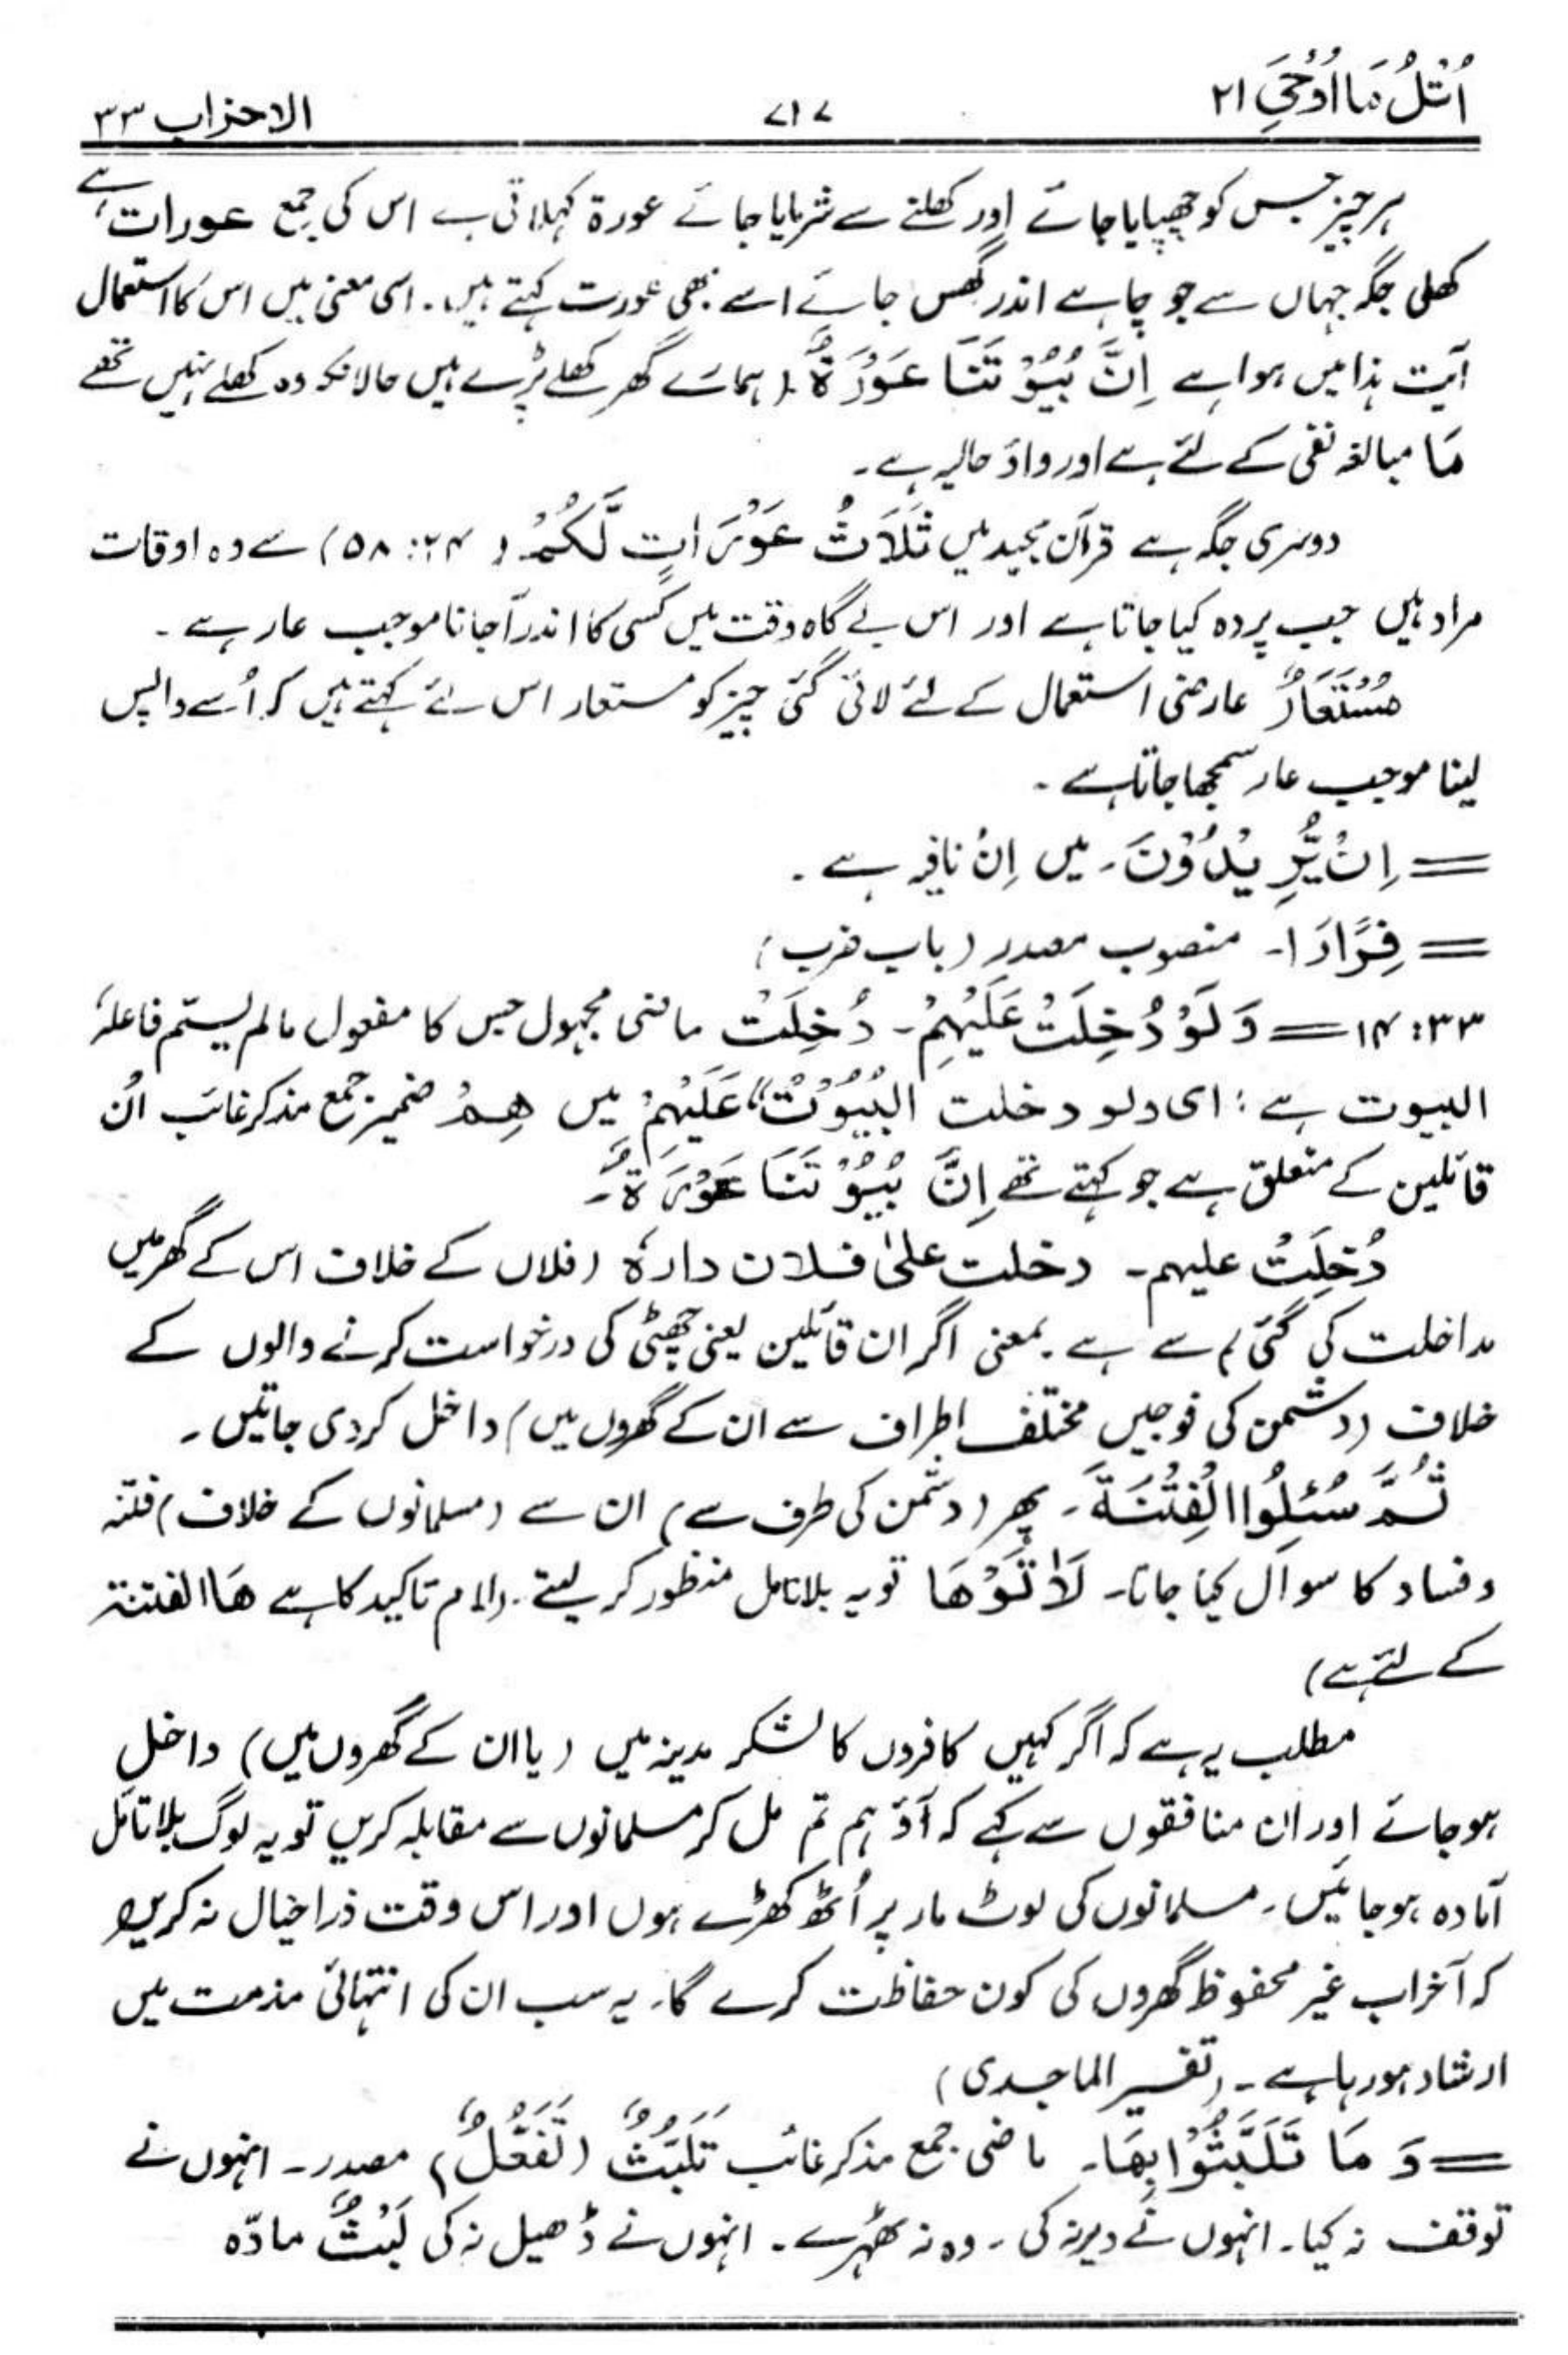 اُتْلُ مَا اُوْحِیَ ۲۱ ۷۱۷ الاحزاب ۳۳
ہر چیز جس کو چھپایا جائے اور کھلنے سے شرمایا جائے عورۃ کہلاتی ہے اس کی جمع عورات ہے
کھلی جگہ جہاں سے جو چاہے اندر گھس جائے اسے بھی عورت کہتے ہیں۔ اسی معنی میں اس کا استعمال
آیت ہذا میں ہوا ہے اِنَّ بُیُوْتَنَا عَوْرَةٌ (ہمارے گھر کھلے پڑے ہیں حالانکہ وہ کھلے نہیں تھے
مَا مبالغہ نفی کے لئے ہے اور واؤ حالیہ ہے۔
دوسری جگہ ہے قرآن مجید میں ثَلَاثُ عَوْرَاتٍ لَّکُمْ (۲۴: ۵۸) سے وہ اوقات
مراد ہیں جب پردہ کیا جاتا ہے اور اس بے گاہ وقت میں کسی کا اندر آجانا موجب عار ہے۔
مُسْتَعَارٌ عارضی استعمال کے لئے لائی گئی چیز کو مستعار اس لئے کہتے ہیں کہ اُسے واپس
لینا موجب عار سمجھا جاتا ہے۔
= اِنْ یُّرِیْدُوْنَ۔ میں اِنْ نافیہ ہے۔
= فِرَارًا۔ منصوب مصدر (باب ضرب)
۳۳: ۱۴ = وَلَوْ دُخِلَتْ عَلَیْہِمْ۔ دُخِلَتْ ماضی مجہول جس کا مفعول مالم یسمّ فاعلہٗ
البیوت ہے: ای ولو دخلت البُیُوْتُ" عَلَیْہِمْ میں ھِمْ ضمیر جمع مذکر غائب اُن
قائلین کے متعلق ہے جو کہتے تھے اِنَّ بُیُوْتَنَا عَوْرَةٌ۔
دُخِلَتْ علیہم۔ دخلت علیٰ فلان دارہٗ (فلاں کے خلاف اس کے گھر میں
مداخلت کی گئی) سے ہے۔ بمعنی اگر ان قائلین یعنی چھٹی کی درخواست کرنے والوں کے
خلاف (دشمن کی فوجیں مختلف اطراف سے ان کے گھروں میں) داخل کردی جائیں۔
ثُمَّ سُئِلُوا الْفِتْنَةَ۔ پھر (دشمن کی طرف سے) ان سے (مسلمانوں کے خلاف) فتنہ
و فساد کا سوال کیا جاتا۔ لَاٰتَوْھَا تو یہ بلاتامل منظور کر لیتے۔ (لام تاکید کا ہے ھَا الفتنۃ
کے لئے ہے)
مطلب یہ ہے کہ اگر کہیں کافروں کا لشکر مدینہ میں (یا ان کے گھروں میں) داخل
ہو جائے اور ان منافقوں سے کہے کہ آؤ ہم تم مل کر مسلمانوں سے مقابلہ کریں تو یہ لوگ بلاتامل
آمادہ ہو جائیں۔ مسلمانوں کی لوٹ مار پر اُٹھ کھڑے ہوں اور اس وقت ذرا خیال نہ کریں
کہ آخر اب غیر محفوظ گھروں کی کون حفاظت کرے گا۔ یہ سب ان کی انتہائی مذمت میں
ارشاد ہو رہا ہے۔ (تفسیر الماجدی)
= وَ مَا تَلَبَّثُوْا بِھَا۔ ماضی جمع مذکر غائب تَلَبُّثٌ (تَفَعُّلٌ) مصدر۔ انہوں نے
توقف نہ کیا۔ انہوں نے دیر نہ کی۔ وہ نہ ٹھہرے۔ انہوں نے ڈھیل نہ کی لَبْثٌ مادّہ